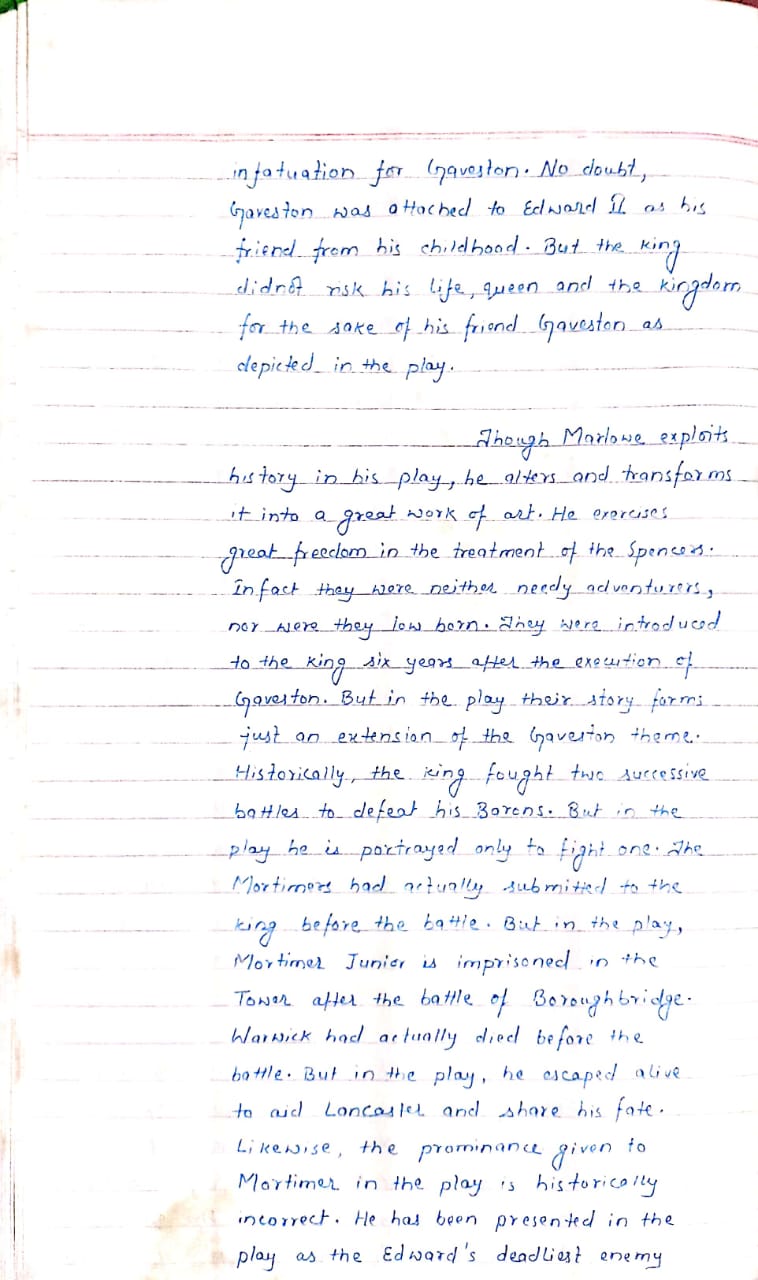 infatuation for Gaveston. No doubt,
Gaveston was attached to Edward II as his
friend from his childhood. But the king
didnot risk his life, queen and the kingdom
for the sake of his friend Gaveston as
depicted in the play.
Though Marlowe exploits
history in his play, he alters and transforms
it into a great work of art. He exercises
great freedom in the treatment of the Spencers.
Infact they were neither needy adventurers,
nor were they low born. They were introduced
to the king six years after the execution of
Gaveston. But in the play their story forms
just an extension of the Gaveston theme.
Historically, the king fought two successive
battles to defeat his Barons. But in the
play he is portrayed only to fight one. The
Mortimers had actually submitted to the
king before the battle. But in the play,
Mortimer Junior is imprisoned in the
Tower after the battle of Boroughbridge.
Warwick had actually died before the
battle. But in the play, he escaped alive
to aid Lancaster and share his fate.
Likewise, the prominance given to
Mortimer in the play is historically
incorrect. He has been presented in the
play as the Edward's deadliest enemy